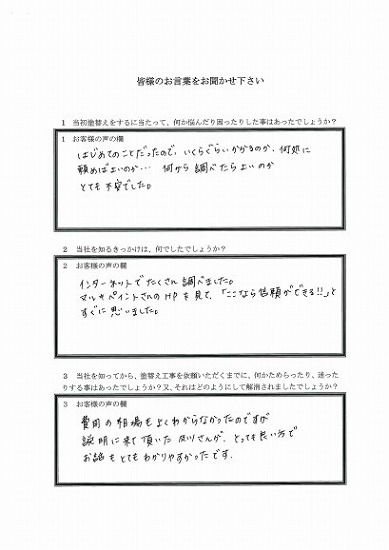 皆様のお言葉をお聞かせ下さい
1 当初塗替えをするに当たって、何か悩んだり困ったりした事はあったでしょうか?
1 お客様の声の欄
はじめてのことだったので、いくらぐらいかかるのか、何処に
頼めばよいのか… 何から調べたらよいのか
とても不安でした。
2 当社を知るきっかけは、何でしたでしょうか?
2 お客様の声の欄
インターネットでたくさん調べました。
マルキペイントさんのHPを見て、「ここなら信頼ができる!!」と
すぐに思いました。
3 当社を知ってから、塗替え工事を依頼いただくまでに、何かためらったり、迷った
りする事はあったでしょうか?又、それはどのようにして解消されましたでしょうか?
3 お客様の声の欄
費用の相場もよくわからなかったのですが
説明に来て頂いた さんが、とっても良い方で
お話もとてもわかりやすかったです.